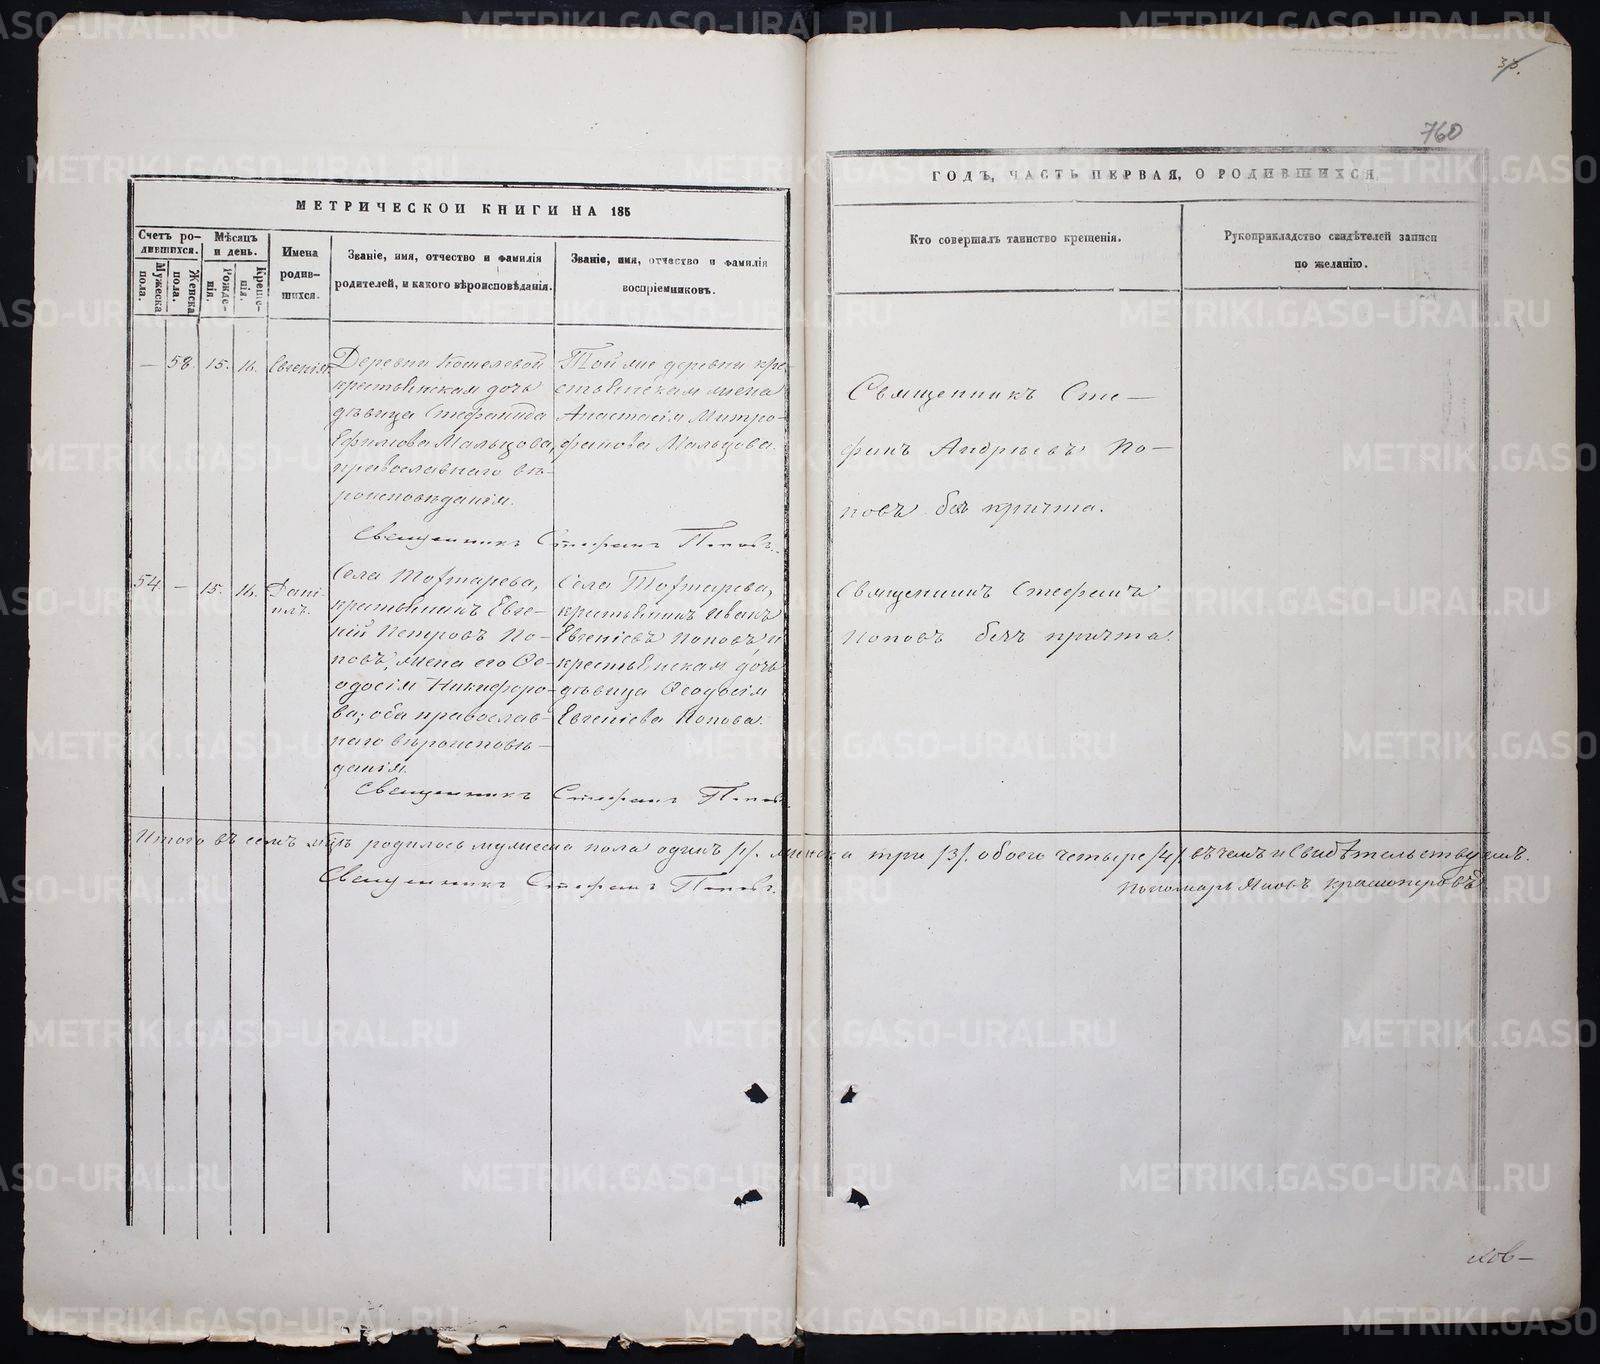 760
МЕТРИЧЕСКОЙ КНИГИ НА 185
ГОДЪ, ЧАСТЬ ПЕРВАЯ, О РОДИВШИХСЯ.
Счетъ родившихся.
Мужеска пола.
Женска пола.
Мѣсяцъ и день.
Рожденія.
Крещенія.
Имена родившихся.
Званіе, имя, отчество и фамилія
родителей, и какого вѣроисповѣданія.
Званіе, имя, отчество и фамилія
воспріемниковъ.
Кто совершалъ таинство крещенія.
Рукоприкладство свидѣтелей записи
по желанію.
— 58. 15. 16. Евгенія.
Деревни Кошелевой
крестьянская дочь
дѣвица Стефанида
Ефимова Мальцова,
православнаго вѣ-
роисповѣданія.
Той же деревни кре-
стьянская жена
Анастасія Митро-
фанова Мальцова.
Священникъ Сте-
фанъ Андреевъ По-
повъ безъ причта.
Священникъ Стефанъ Поповъ.
54 — 15. 16. Дані-
илъ.
Села
крестьянинъ Евге-
ній Петровъ По-
повъ, жена его Ѳе-
одосія Никифоро-
ва; оба православ-
наго вѣроисповѣ-
данія.
Села
крестьянинъ Иванъ
Евгеніевъ Поповъ и
крестьянская дочь
дѣвица Ѳеодосія
Евгеніева Попова.
Священникъ Стефанъ
Поповъ безъ причта.
Священникъ Стефанъ Поповъ
Итого въ семъ мцѣ родилось мужеска пола одинъ /1/. женска три /3/. обоего четыре /4/. въ чемъ и свидѣтельствуемъ.
Священникъ Стефанъ Поповъ.
Пономарь Яковъ Красноперовъ
METRIKI.GASO-URAL.RU